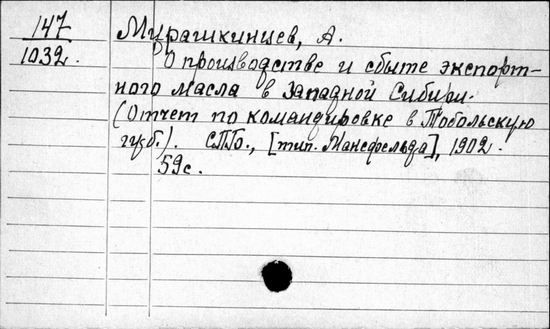 147 Мурашкинцев, А.
1032. О производстве и сбыте экспорт-
ного масла в Западной Сибири.
(Отчет по командировке в Тобольскую
губ.). СПб., [тип. Мансфельда], 1902.
59с.